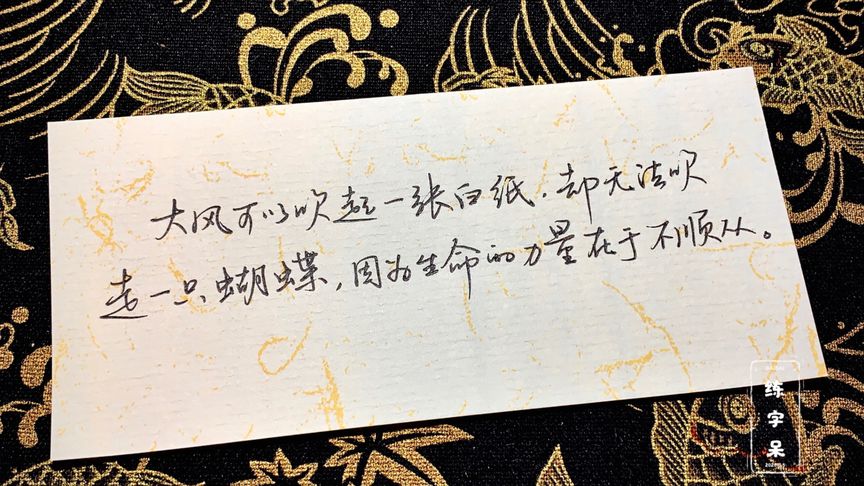 大风可以吹起一张白纸，却无法吹
走一只蝴蝶，因为生命的力量在于不顺从。
练字呆